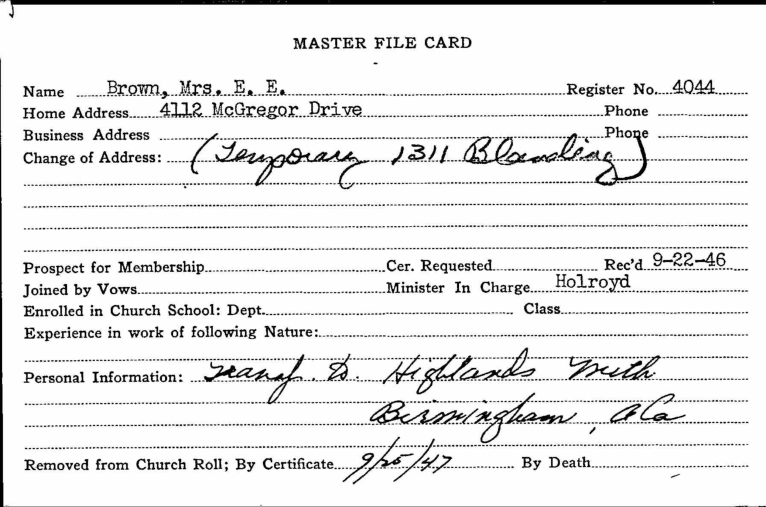 MASTER FILE CARD
Name Brown, Mrs. E. E. Register No. 4044
Home Address 4112 McGregor Drive Phone
Business Address Phone
Change of Address: (Temporary 1311 Blanding)
Prospect for Membership Cer. Requested Rec'd 9-22-46
Joined by Vows Minister In Charge Holroyd
Enrolled in Church School: Dept. Class
Experience in work of following Nature:
Personal Information: Transf. to Highlands Meth
Birmingham, Ala
Removed from Church Roll; By Certificate 9/25/47 By Death